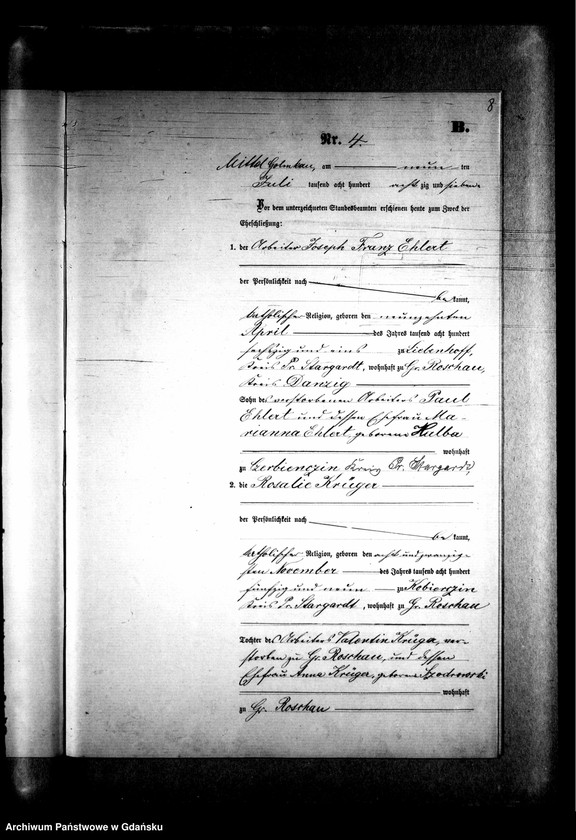 8
B.
Nr. 4.
Mittel Golmkau, am neun ten
Juli tausend acht hundert acht zig und sieben
Vor dem unterzeichneten Standesbeamten erschienen heute zum Zweck der
Eheschließung:
1. der Arbeiter Joseph Franz Ehlert
der Persönlichkeit nach
be kannt,
katholischer Religion, geboren den neunzehnten
April des Jahres tausend acht hundert
sechszig und eins zu Liebenhoff,
Kreis Pr. Stargardt, wohnhaft zu Gr. Roschau,
Kreis Danzig
Sohn des verstorbenen Arbeiters Paul
Ehlert und dessen Ehefrau Ma-
rianna Ehlert, geborene Hulba
wohnhaft
zu Gerbienczin Kreis Pr. Stargardt,
2. die Rosalie Krüger
der Persönlichkeit nach
be kannt,
katholischer Religion, geboren den acht und zwanzig-
sten November des Jahres tausend acht hundert
fünfzig und neun zu Kobierczin
Kreis Pr. Stargardt, wohnhaft zu Gr. Roschau
Tochter des Arbeiters Valentin Krüger, ver-
storben zu Gr. Roschau, und dessen
Ehefrau Anna Krüger, geborene Szodrowski
wohnhaft
zu Gr. Roschau
Archiwum Państwowe w Gdańsku